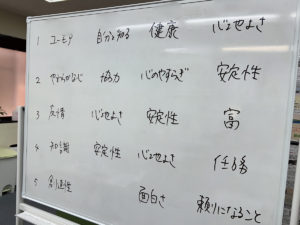 1 ユーモア 自分を知る 健康 心地よさ
2 やわらかな心 協力 心のやすらぎ 安定性
3 友情 心地よさ 安定性 富
4 知識 安定性 心地よさ 任務
5 創造性 面白さ 頼りになること